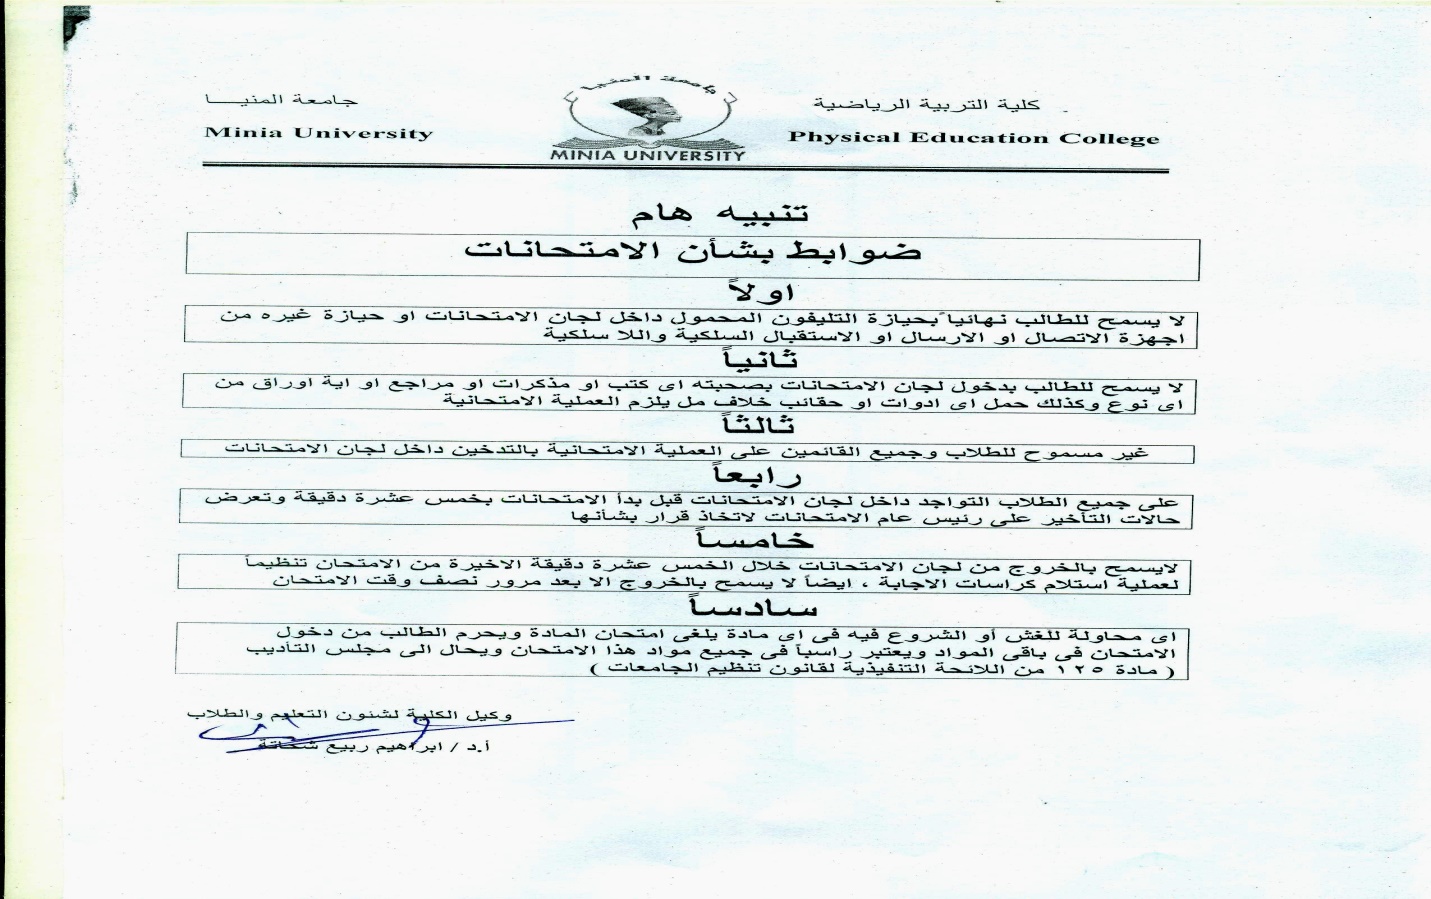 كلية التربية الرياضية
جامعة المنيـــا
Physical Education College
Minia University
جامعة المنيا
MINIA UNIVERSITY
تنبيه هام
ضوابط بشأن الامتحانات
اولاً
لا يسمح للطالب نهائياً بحيازة التليفون المحمول داخل لجان الامتحانات او حيازة غيره من
اجهزة الاتصال او الارسال او الاستقبال السلكية واللا سلكية
ثانياً
لا يسمح للطالب بدخول لجان الامتحانات بصحبته اى كتب او مذكرات او مراجع او اية اوراق من
اى نوع وكذلك حمل اى ادوات او حقائب خلاف مل يلزم العملية الامتحانية
ثالثاً
غير مسموح للطلاب وجميع القائمين على العملية الامتحانية بالتدخين داخل لجان الامتحانات
رابعاً
على جميع الطلاب التواجد داخل لجان الامتحانات قبل بدأ الامتحانات بخمس عشرة دقيقة وتعرض
حالات التأخير على رئيس عام الامتحانات لاتخاذ قرار بشأنها
خامساً
لايسمح بالخروج من لجان الامتحانات خلال الخمس عشرة دقيقة الاخيرة من الامتحان تنظيماً
لعملية استلام كراسات الاجابة ، ايضاً لا يسمح بالخروج الا بعد مرور نصف وقت الامتحان
سادساً
اى محاولة للغش أو الشروع فيه فى اى مادة يلغى امتحان المادة ويحرم الطالب من دخول
الامتحان فى باقى المواد ويعتبر راسباً فى جميع مواد هذا الامتحان ويحال الى مجلس التأديب
( مادة ١٢٥ من اللائحة التنفيذية لقانون تنظيم الجامعات )
وكيل الكلية لشئون التعليم والطلاب
أ.د / ابراهيم ربيع شحاتة